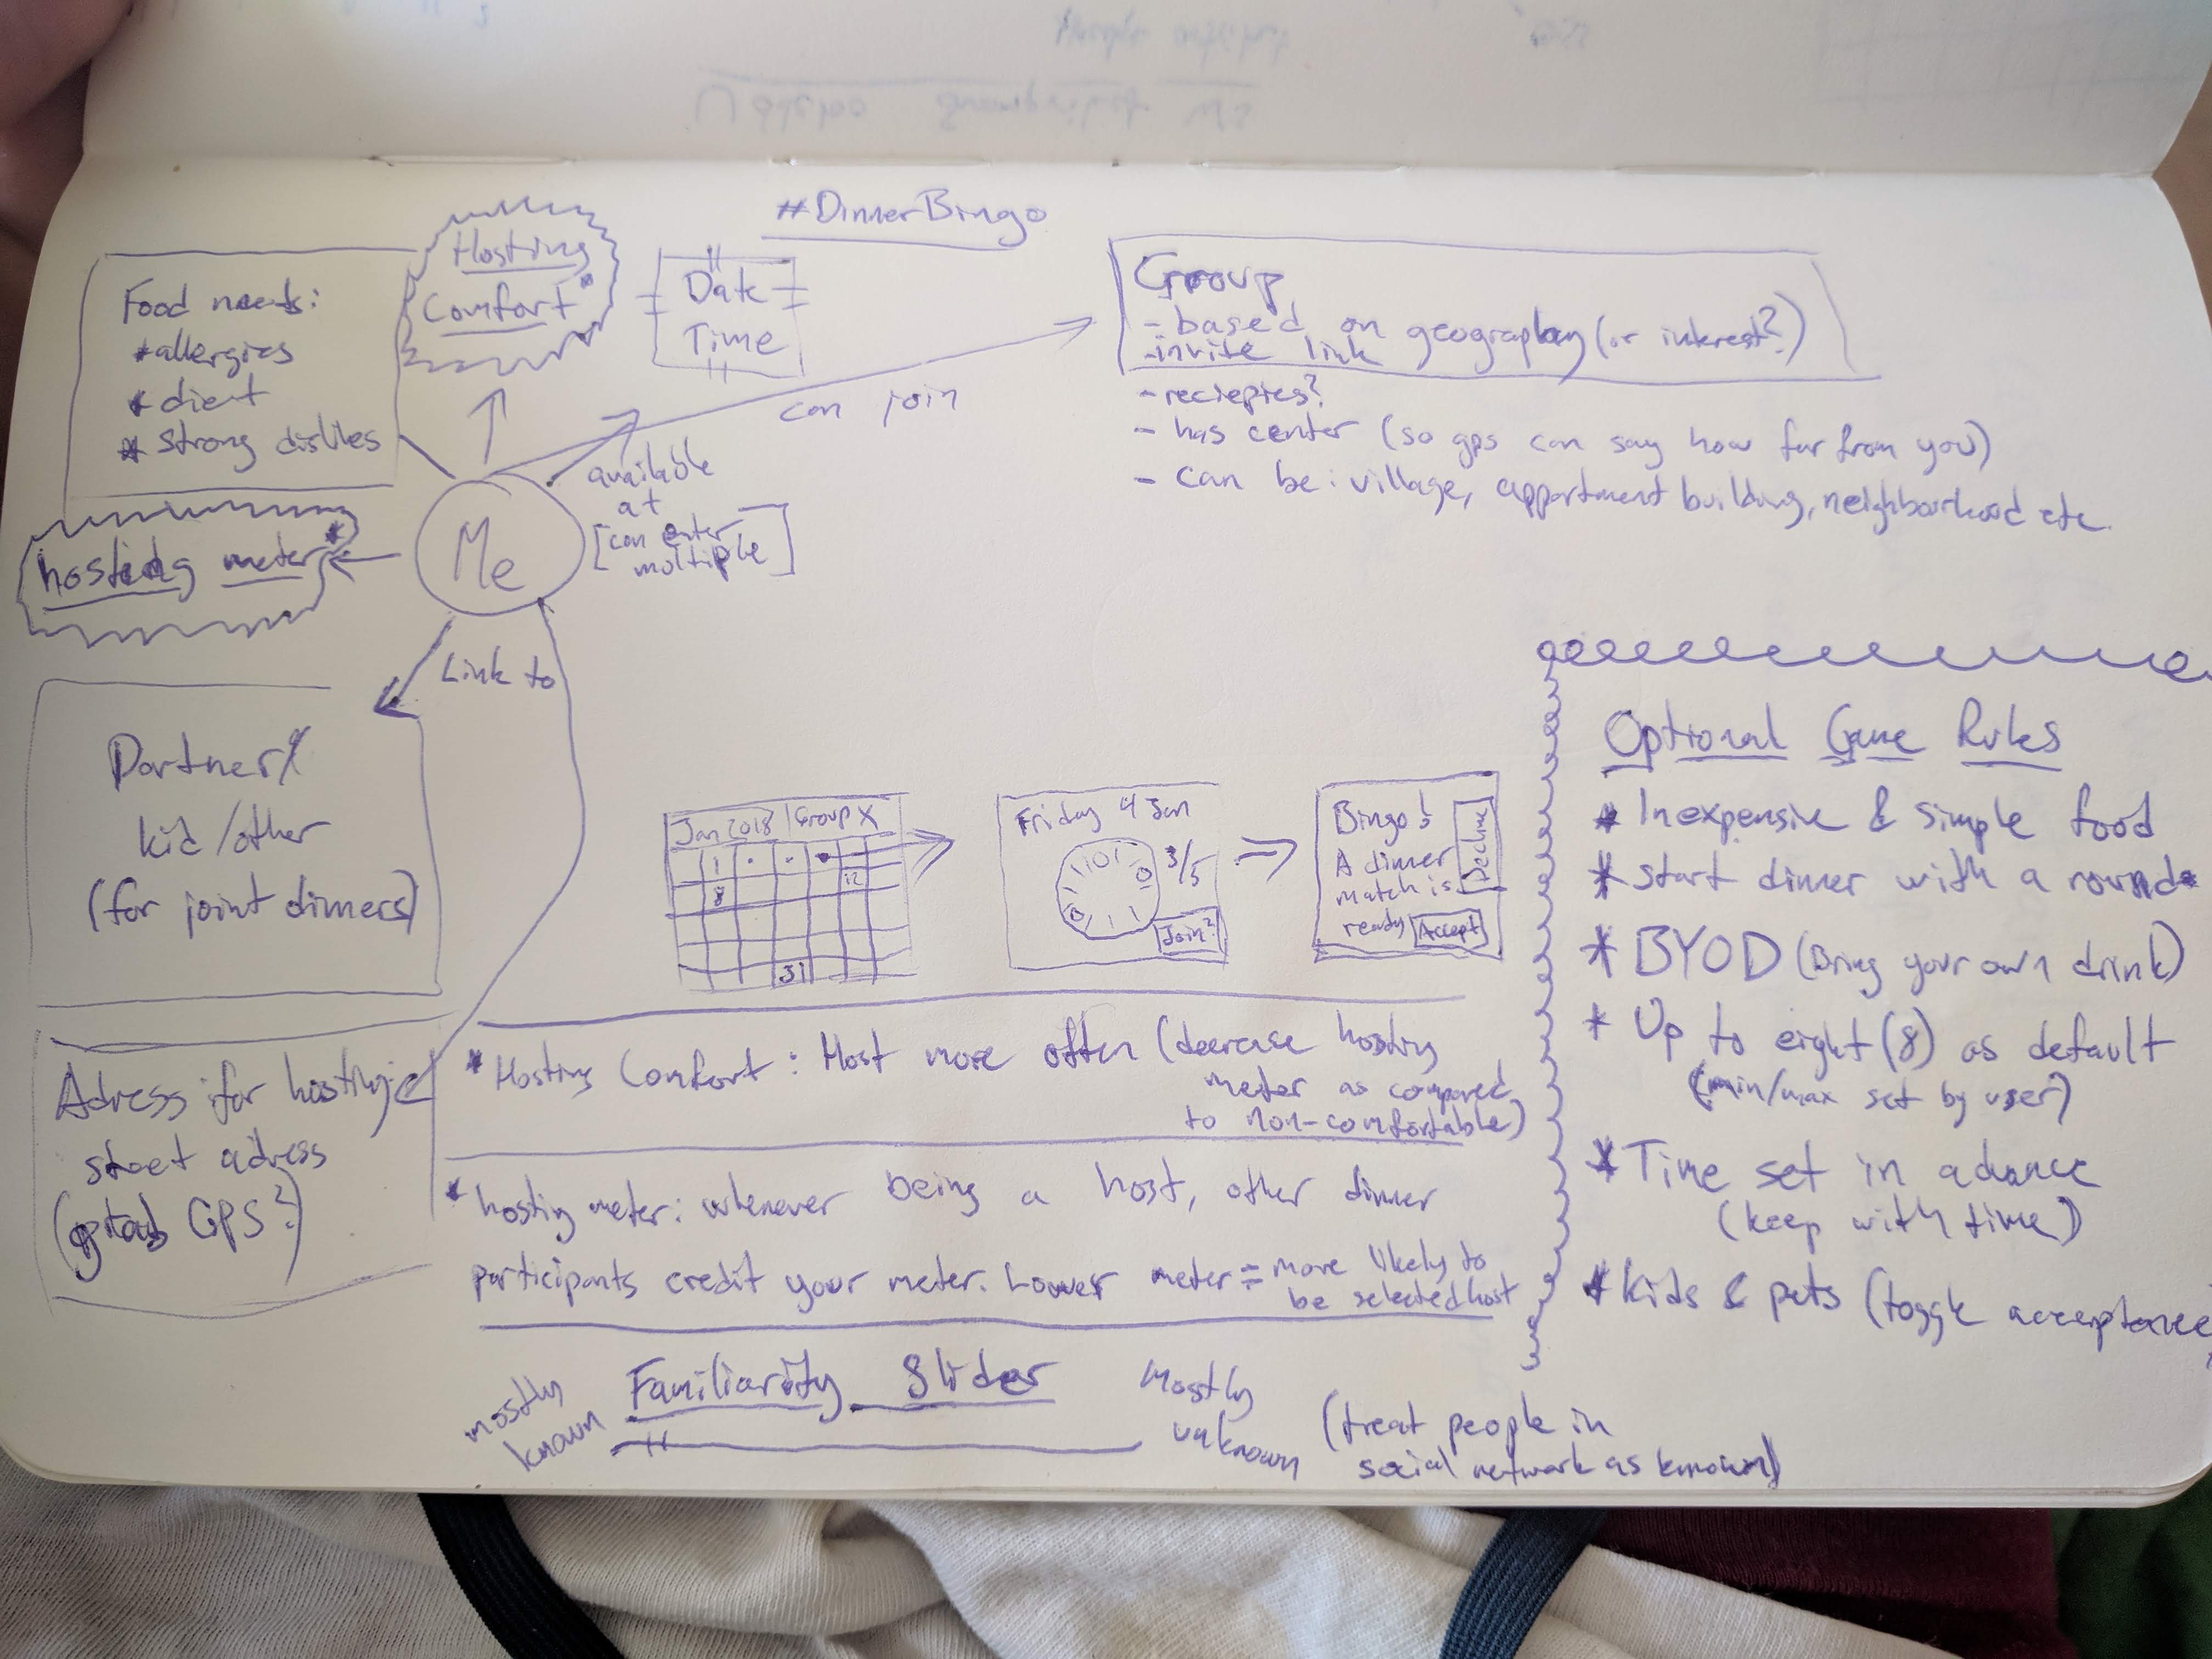 #DinnerBingo
Food needs:
*allergies
* dient
* strong dislikes
Hosting
Comfort*
Date
Time
can join
Group
- based on geography (or interest?)
- invite link
- reciepies?
- has center (so gps can say how far from you)
- can be: village, appartment building, neighbourhood etc.
available
at
[can enter
multiple]
Me
hosting meter*
Link to
Partner
kid/other
(for joint dinners)
Adress for hosting:
street adress
GPS?)
Jan 2018 | Group X
1
8
12
31
Friday 4 Jan
3/5
Join?
Bingo!
A dinner
match is
ready
Accept
Decline
* Hosting Comfort: Host more often (decrease hosting
meter as compared
to non-comfortable)
* hosting meter: whenever being a host, other dinner
participants credit your meter. Lower meter = more likely to
be selected host
Familiarity Slider
mostly
known
Mostly
unknown
(treat people in
social network as known)
Optional Game Rules
* Inexpensive & simple food
* start dinner with a round
* BYOD (Bring your own drink)
* Up to eight (8) as default
(min/max set by user)
* Time set in advance
(keep with time)
* Kids & pets (toggle acceptance